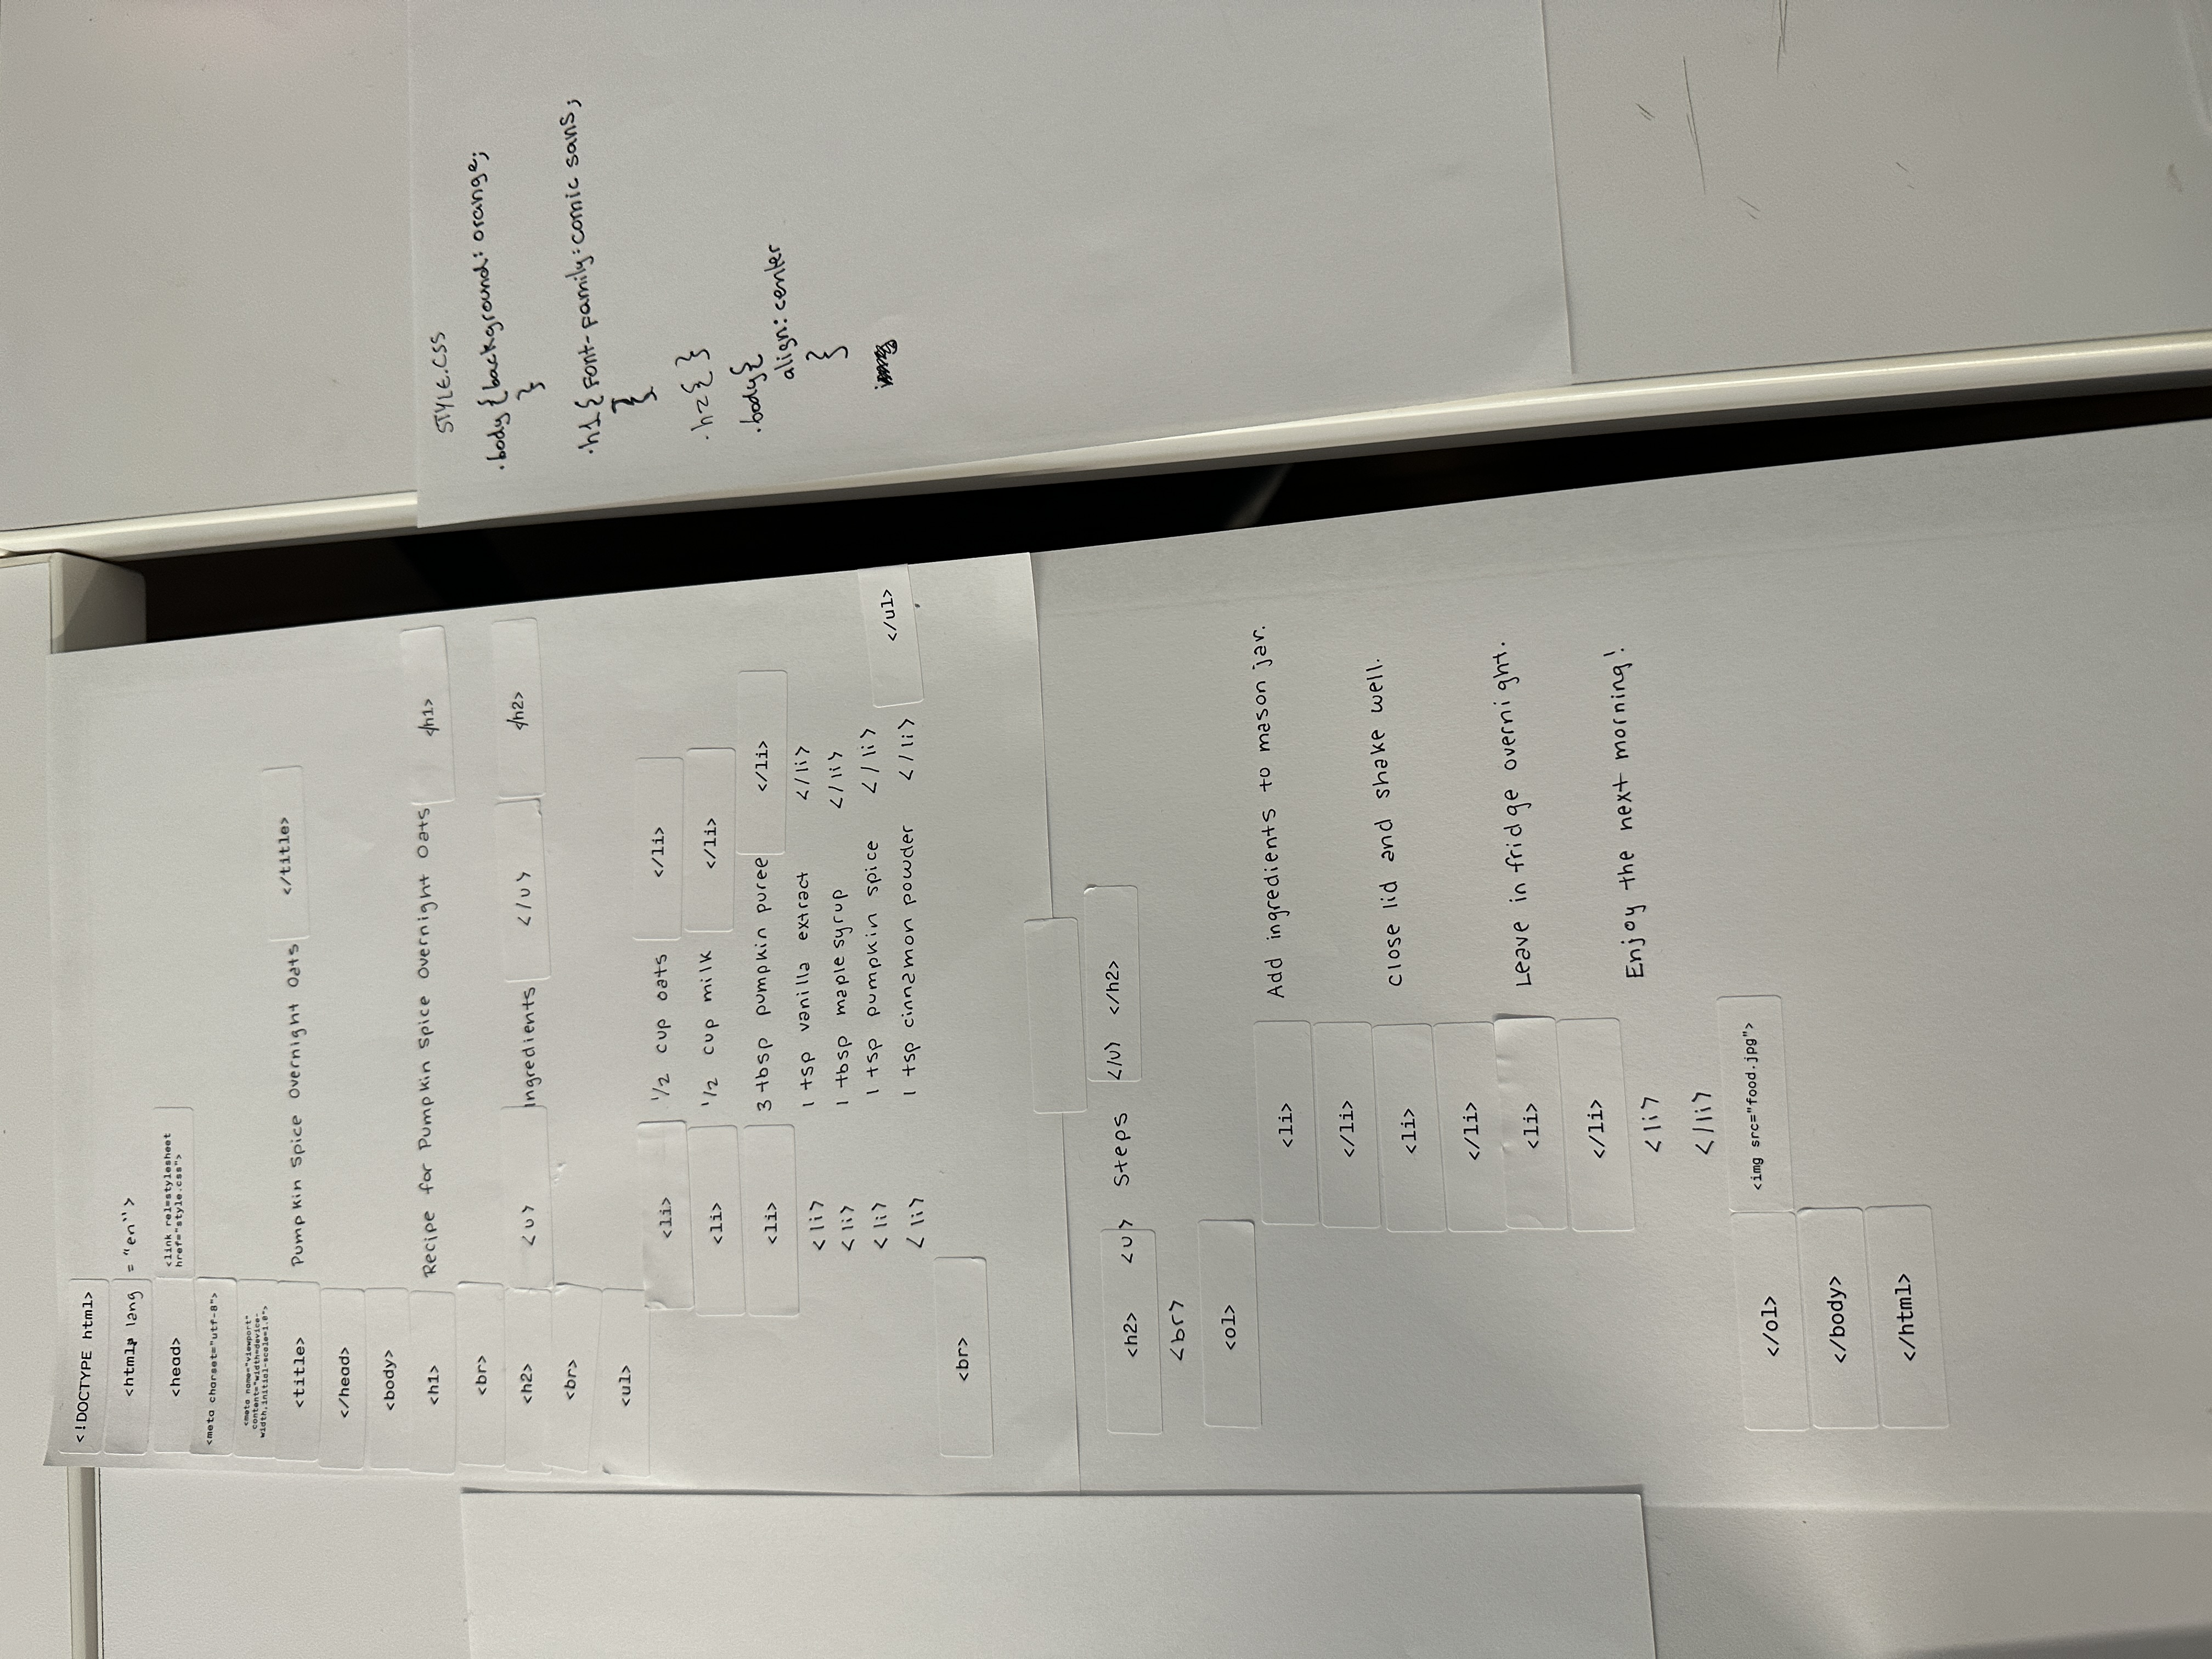 <!DOCTYPE html>
<html lang = "en">
<head> <link rel=stylesheet
href="style.css">
<meta charset="utf-8">
<meta name="viewport"
content="width=device-
width,initial-scale=1.0">
<title> Pumpkin Spice Overnight Oats </title>
</head>
<body>
<h1> Recipe for Pumpkin Spice Overnight Oats </h1>
<br>
<h2> <u> Ingredients </u> </h2>
<br>
<ul>
<li> 1/2 cup oats </li>
<li> 1/2 cup milk </li>
<li> 3 tbsp pumpkin puree </li>
<li> 1 tsp vanilla extract </li>
<li> 1 tbsp maple syrup </li>
<li> 1 tsp pumpkin spice </li>
<li> 1 tsp cinnamon powder </li> </ul>
<br>
<h2> <u> Steps </u> </h2>
<br>
<ol>
<li> Add ingredients to mason jar.
</li>
<li> Close lid and shake well.
</li>
<li> Leave in fridge overnight.
</li>
<li> Enjoy the next morning!
</li>
</ol> <img src="food.jpg">
</body>
</html>
STYLE.CSS
.body {background: orange;
}
.h1 { font-family: comic sans;
}
.h2 { }
.body{
align: center
}